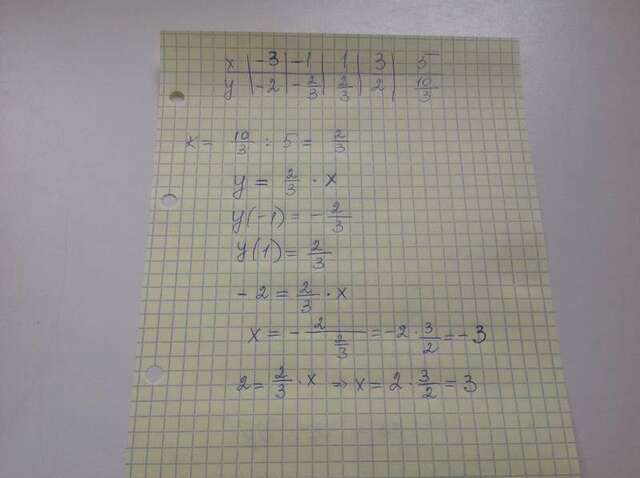 x | -3 | -1 | 1 | 3 | 5
y | -2 | -2/3 | 2/3 | 2 | 10/3
K = 10/3 : 5 = 2/3
y = 2/3 · x
y(-1) = -2/3
y(1) = 2/3
-2 = 2/3 · x
x = - 2/(2/3) = -2 · 3/2 = -3
2 = 2/3 · x ⇒ x = 2 · 3/2 = 3